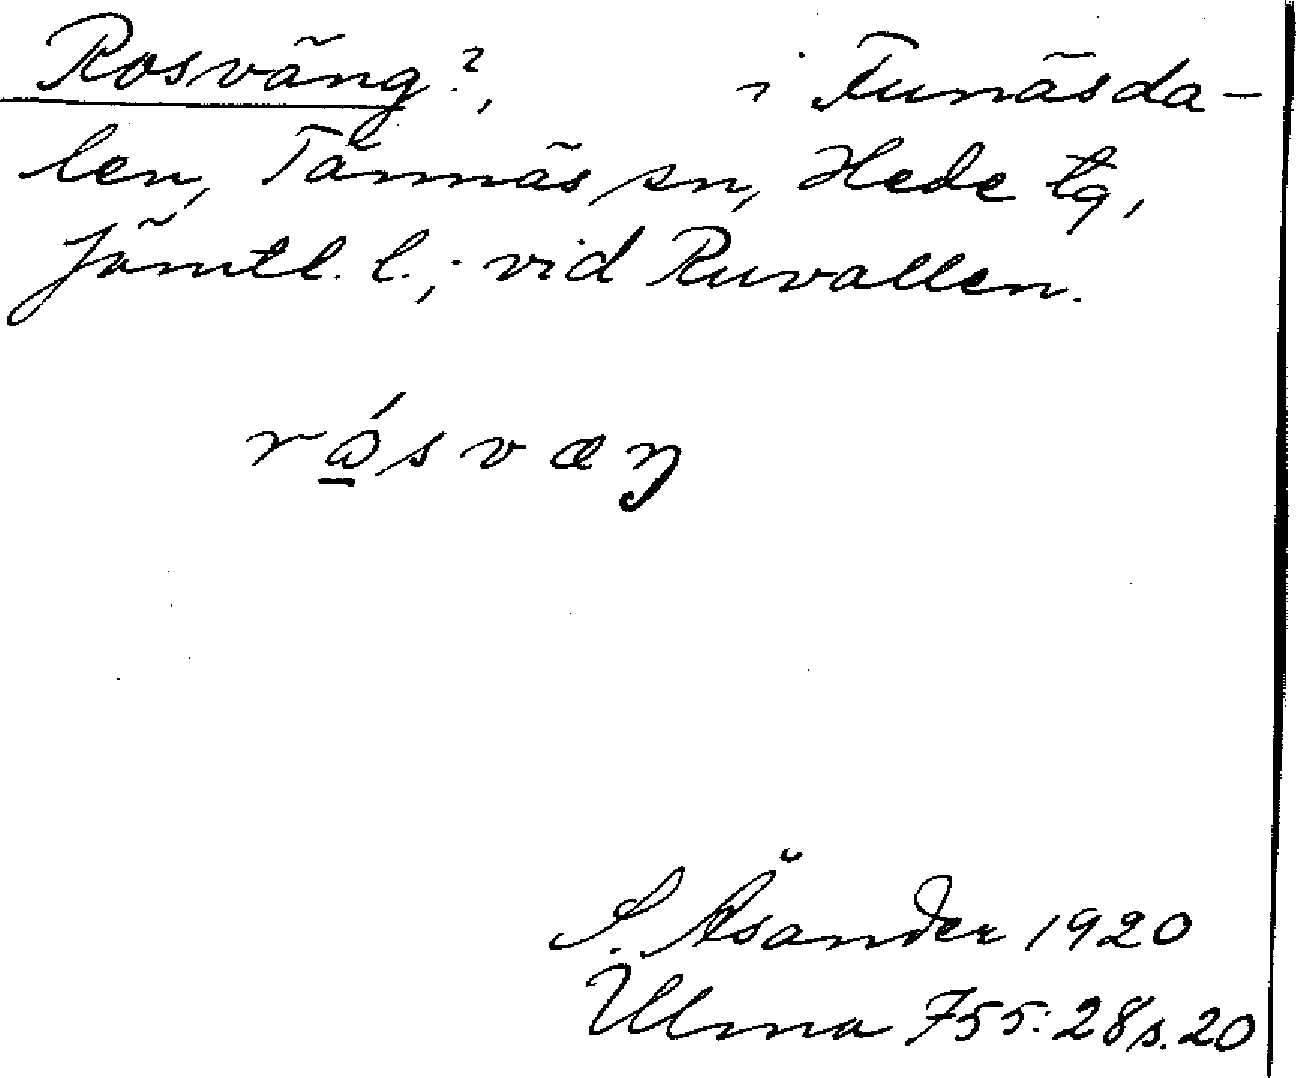 Rosväng?, i Funäsda-
len, Tännäs sn, Hede tg,
Jämtl. l.; vid Ruvallen.
rώ̲svæŋ
S. Åsander 1920
Ulma 755:28 s. 20